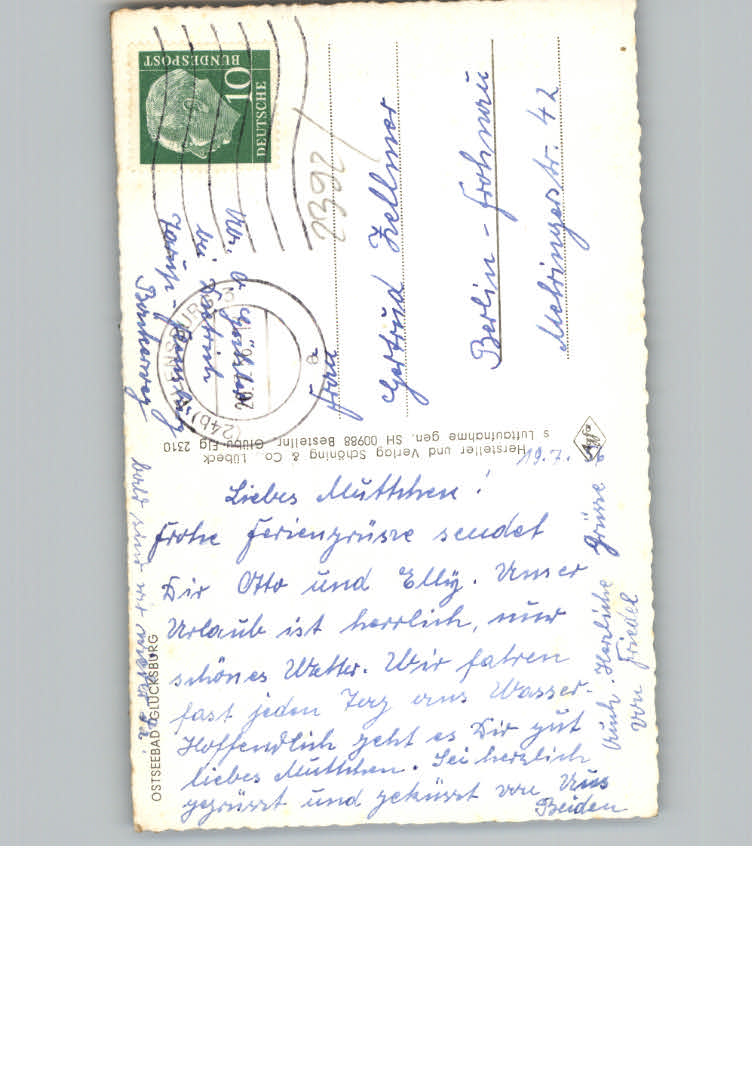 DEUTSCHE
BUNDESPOST
10
(24b) FLENSBURG
a
2392
Frau
Gertrud Zellmer
Berlin - Frohnau
Mehringerstr. 42
bei
Tarup - Flensburg
Hersteller und Verlag Schöning & Co., Lübeck
s Luftaufnahme gen. SH 00988 Bestellnr. Glübu Elg 2310
Agfa
OSTSEEBAD GLÜCKSBURG
19.7.
Liebes Muttchen!
Frohe Feriengrüsse sendet
Dir Otto und Elly. Unser
Urlaub ist herrlich, nur
schönes Wetter. Wir fahren
fast jeden Tag ans Wasser.
Hoffendlich geht es Dir gut
liebes Muttchen. Sei herzlich
gegrüsst und geküsst von Uns
Beiden
Auch Herzliche Grüsse
von Friedel
bald sind wir wieder da